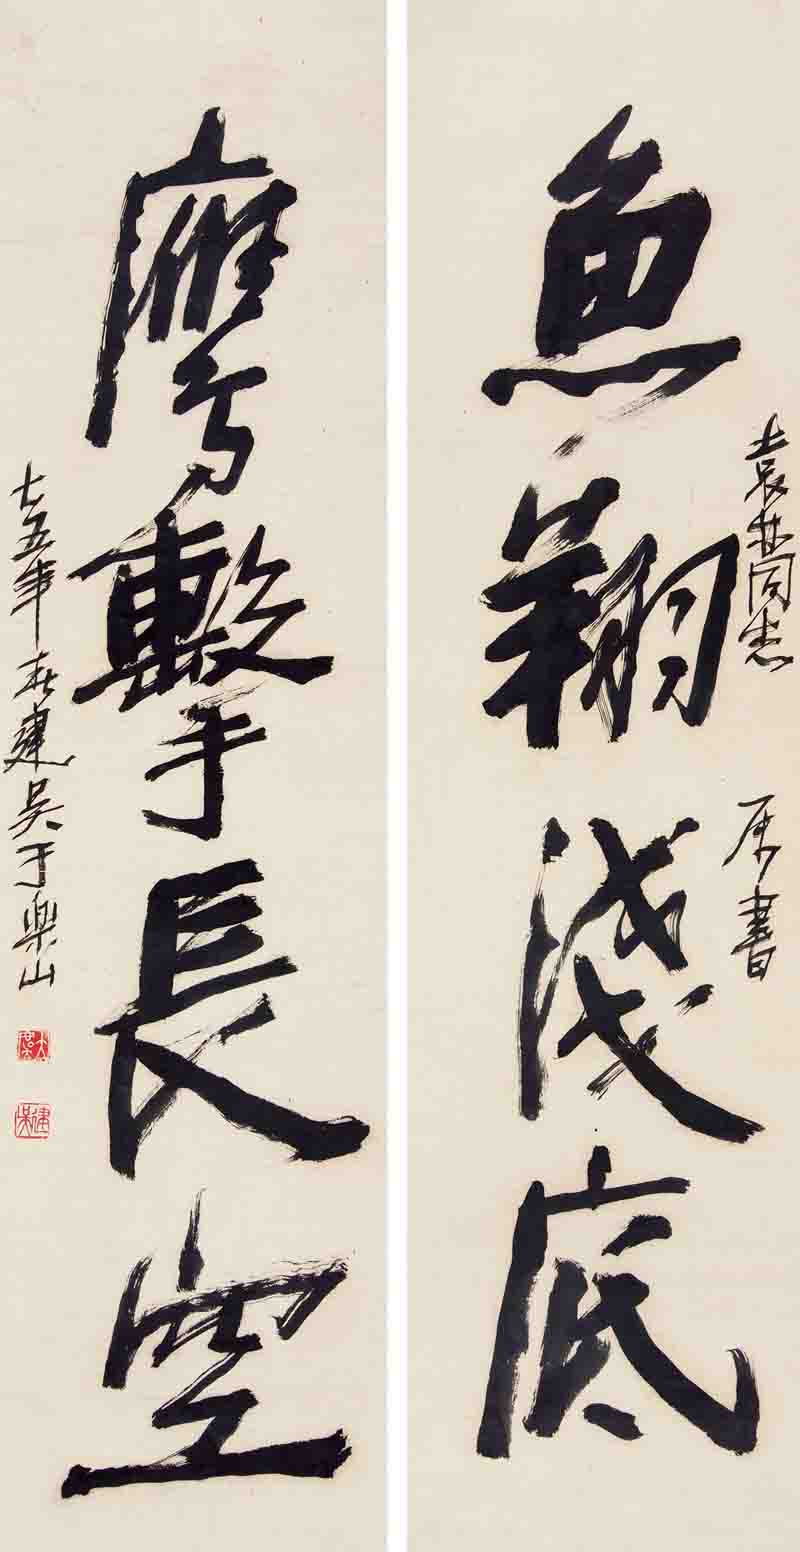 魚翔淺底
袁林同志
屬書
鷹擊長空
七五年春建吴于樂山
建吴